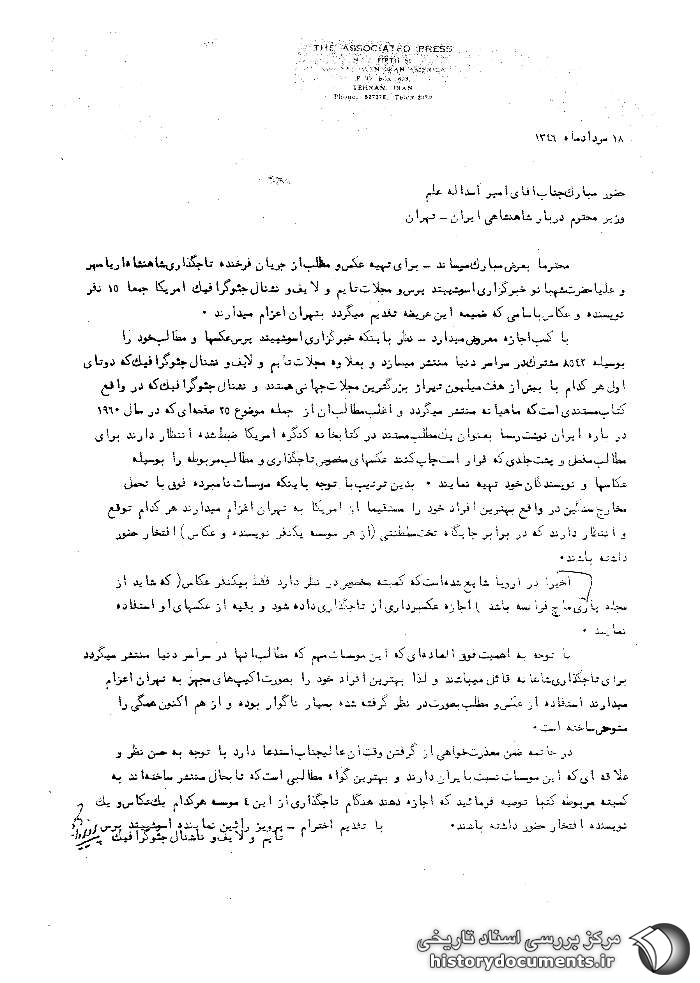 THE ASSOCIATED PRESS
TEHRAN, IRAN
۱۸ مردادماه ۱۳۴۶
حضور مبارک جناب آقای امیر اسداله علم
وزیر محترم دربار شاهنشاهی ایران – تهران
محترما بعرض مبارک میرساند – برای تهیه عکس و مطلب از جریان فرخنده تاجگذاری شاهنشاه آریامهر
و علیاحضرت شهبانو خبرگزاری اسوشییتد پرس و مجلات تایم و لایف و نشنال جئوگرافیک امریکا جمعا ۱۵ نفر
نویسنده و عکاس باسامی که ضمیمه این عریضه تقدیم میگردد بتهران اعزام میدارند ۰
با کسب اجازه معروض میدارد – نظر باینکه خبرگزاری اسوشییتد پرس عکسها و مطالب خود را
بوسیله ۸۵۴۲ مشترک در سراسر دنیا منتشر میسازد و بعلاوه مجلات تایم و لایف و نشنال جئوگرافیک که دوتای
اولی هر کدام با بیش از هفت میلیون تیراژ بزرگترین مجلات جهانی هستند و نشنال جئوگرافیک که در واقع
کتاب مستندی است که ماهیانه منتشر میگردد و اغلب مطالب آن از جمله موضوع ۲۵ صفحه ای که در سال ۱۹۶۰
در باره ایران نوشت رسما بعنوان یک مطلب مستند در کتابخانه کنگره امریکا ضبط شده انتظار دارند برای
مطالب مفصل و پشت جلدی که قرار است چاپ کنند عکسهای مخصوص تاجگذاری و مطالب مربوطه را بوسیله
عکاسها و نویسندگان خود تهیه نمایند ۰ بدین ترتیب با توجه باینکه موسسات نامبرده فوق با تحمل
مخارج سنگین در واقع بهترین افراد خود را مستقیما از امریکا به تهران اعزام میدارند هر کدام توقع
و انتظار دارند که در برابر جایگاه تخت سلطنتی (از هر موسسه یکنفر نویسنده و عکاس) افتخار حضور
داشته باشند۰
اخیرا در اروپا شایع شده است که کمیته مخصوص در نظر دارد فقط بیکنفر عکاس( که شاید از
مجله پاری ماچ فرانسه باشد ) اجازه عکسبرداری از تاجگذاری داده شود و بقیه از عکسهای او استفاده
نمایند ۰
با توجه به اهمیت فوق العاده ای که این موسسات مهم که مطالب آنها در سراسر دنیا منتشر میگردد
برای تاجگذاری شاهانه قائل میباشند و لذا بهترین افراد خود را بصورت اکیپ های مجهز به تهران اعزام
میدارند استفاده از عکس و مطلب بصورت در نظر گرفته شده بسیار ناگوار بوده و از هم اکنون همگی را
متوحش ساخته است۰
در خاتمه ضمن معذرت خواهی از گرفتن وقت آن عالیجناب استدعا دارد با توجه به حسن نظر و
علاقه ای که این موسسات نسبت بایران دارند و بهترین گواه مطالبی است که تابحال منتشر ساخته اند به
کمیته مربوطه کتبا توصیه فرمائید که اجازه دهند هنگام تاجگذاری از این ۴ موسسه هرکدام یک عکاس و یک
نویسنده افتخار حضور داشته باشند۰ با تقدیم احترام – پرویز رائین نماینده اسوشییتد پرس
تایم و لایف و ناشنال جئوگرافیک
مرکز بررسی اسناد تاریخی
historydocuments.ir